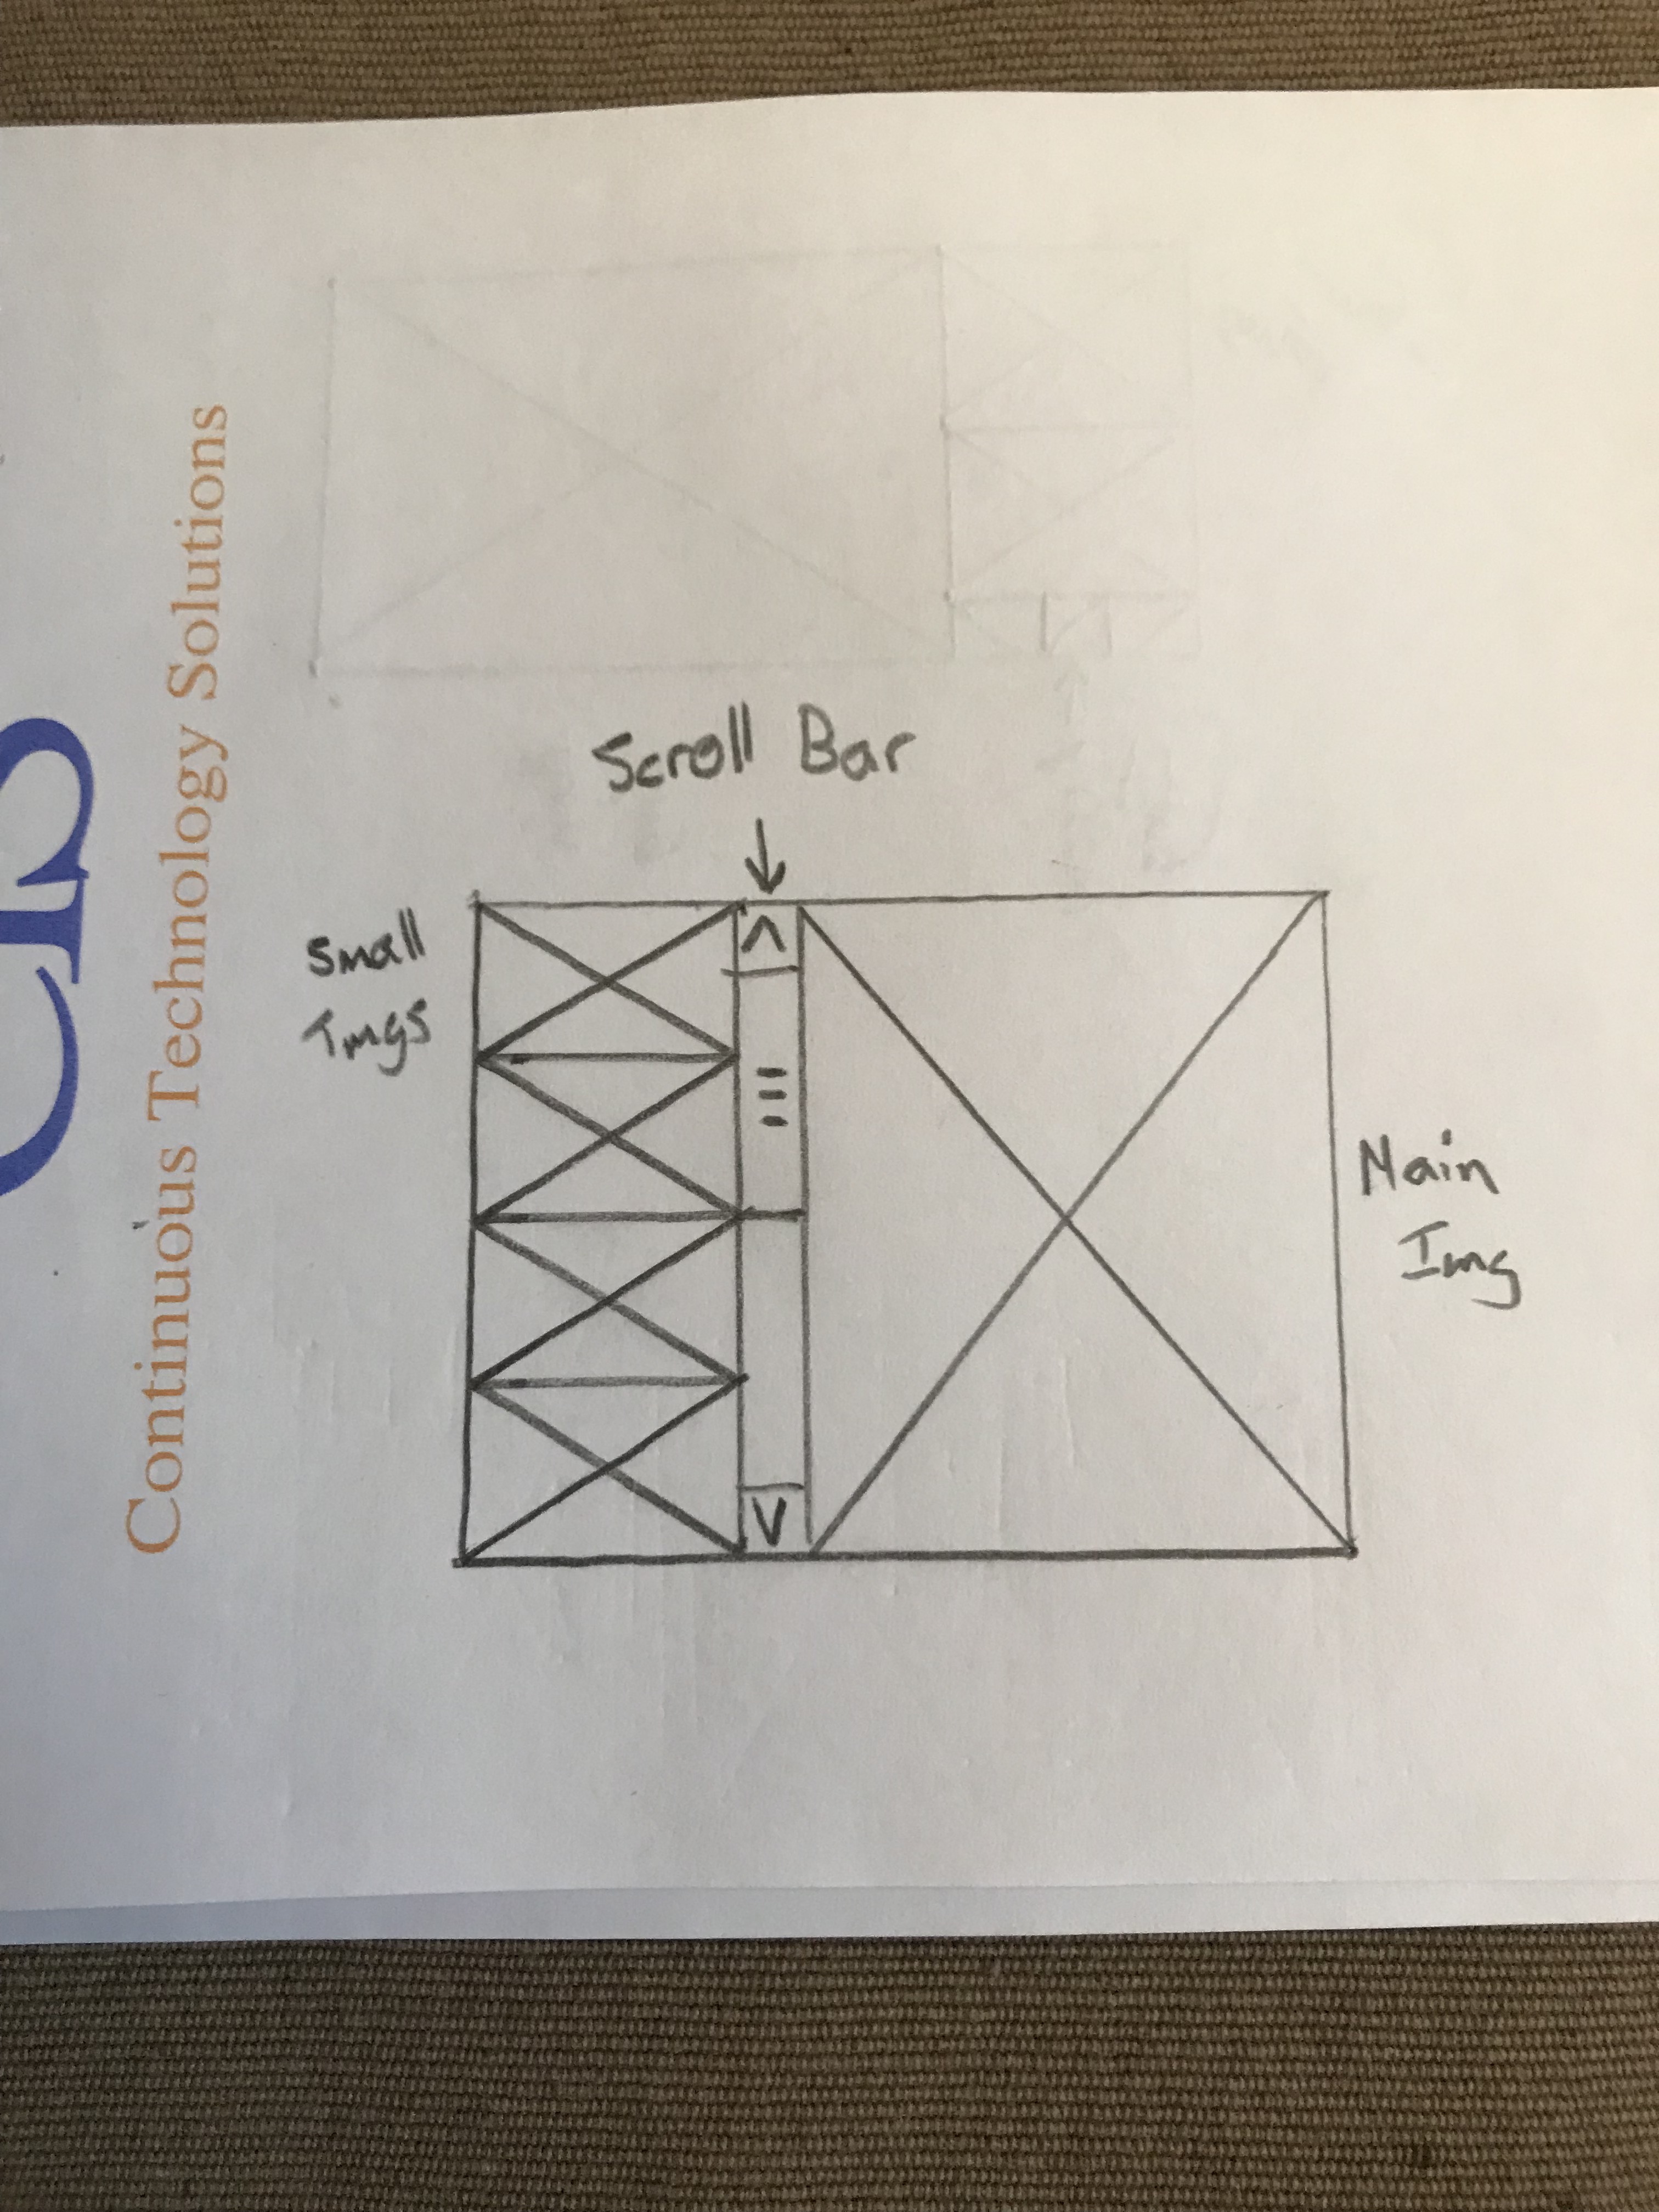 Continuous Technology Solutions
Scroll Bar
Small
Imgs
Main
Img